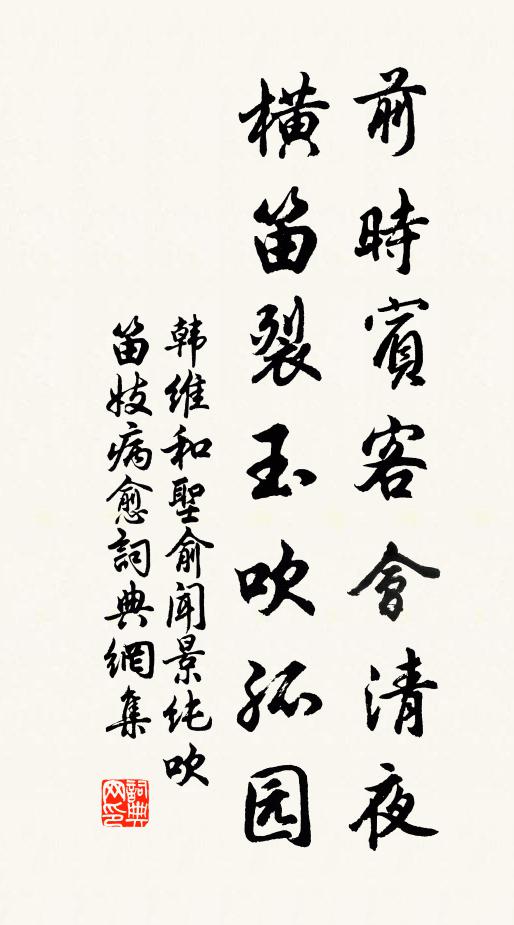 前時賓客會清夜
橫笛裂玉吹孤园
韩維和聖俞聞景纯吹
笛妓病愈詞典網集
詞典
网印